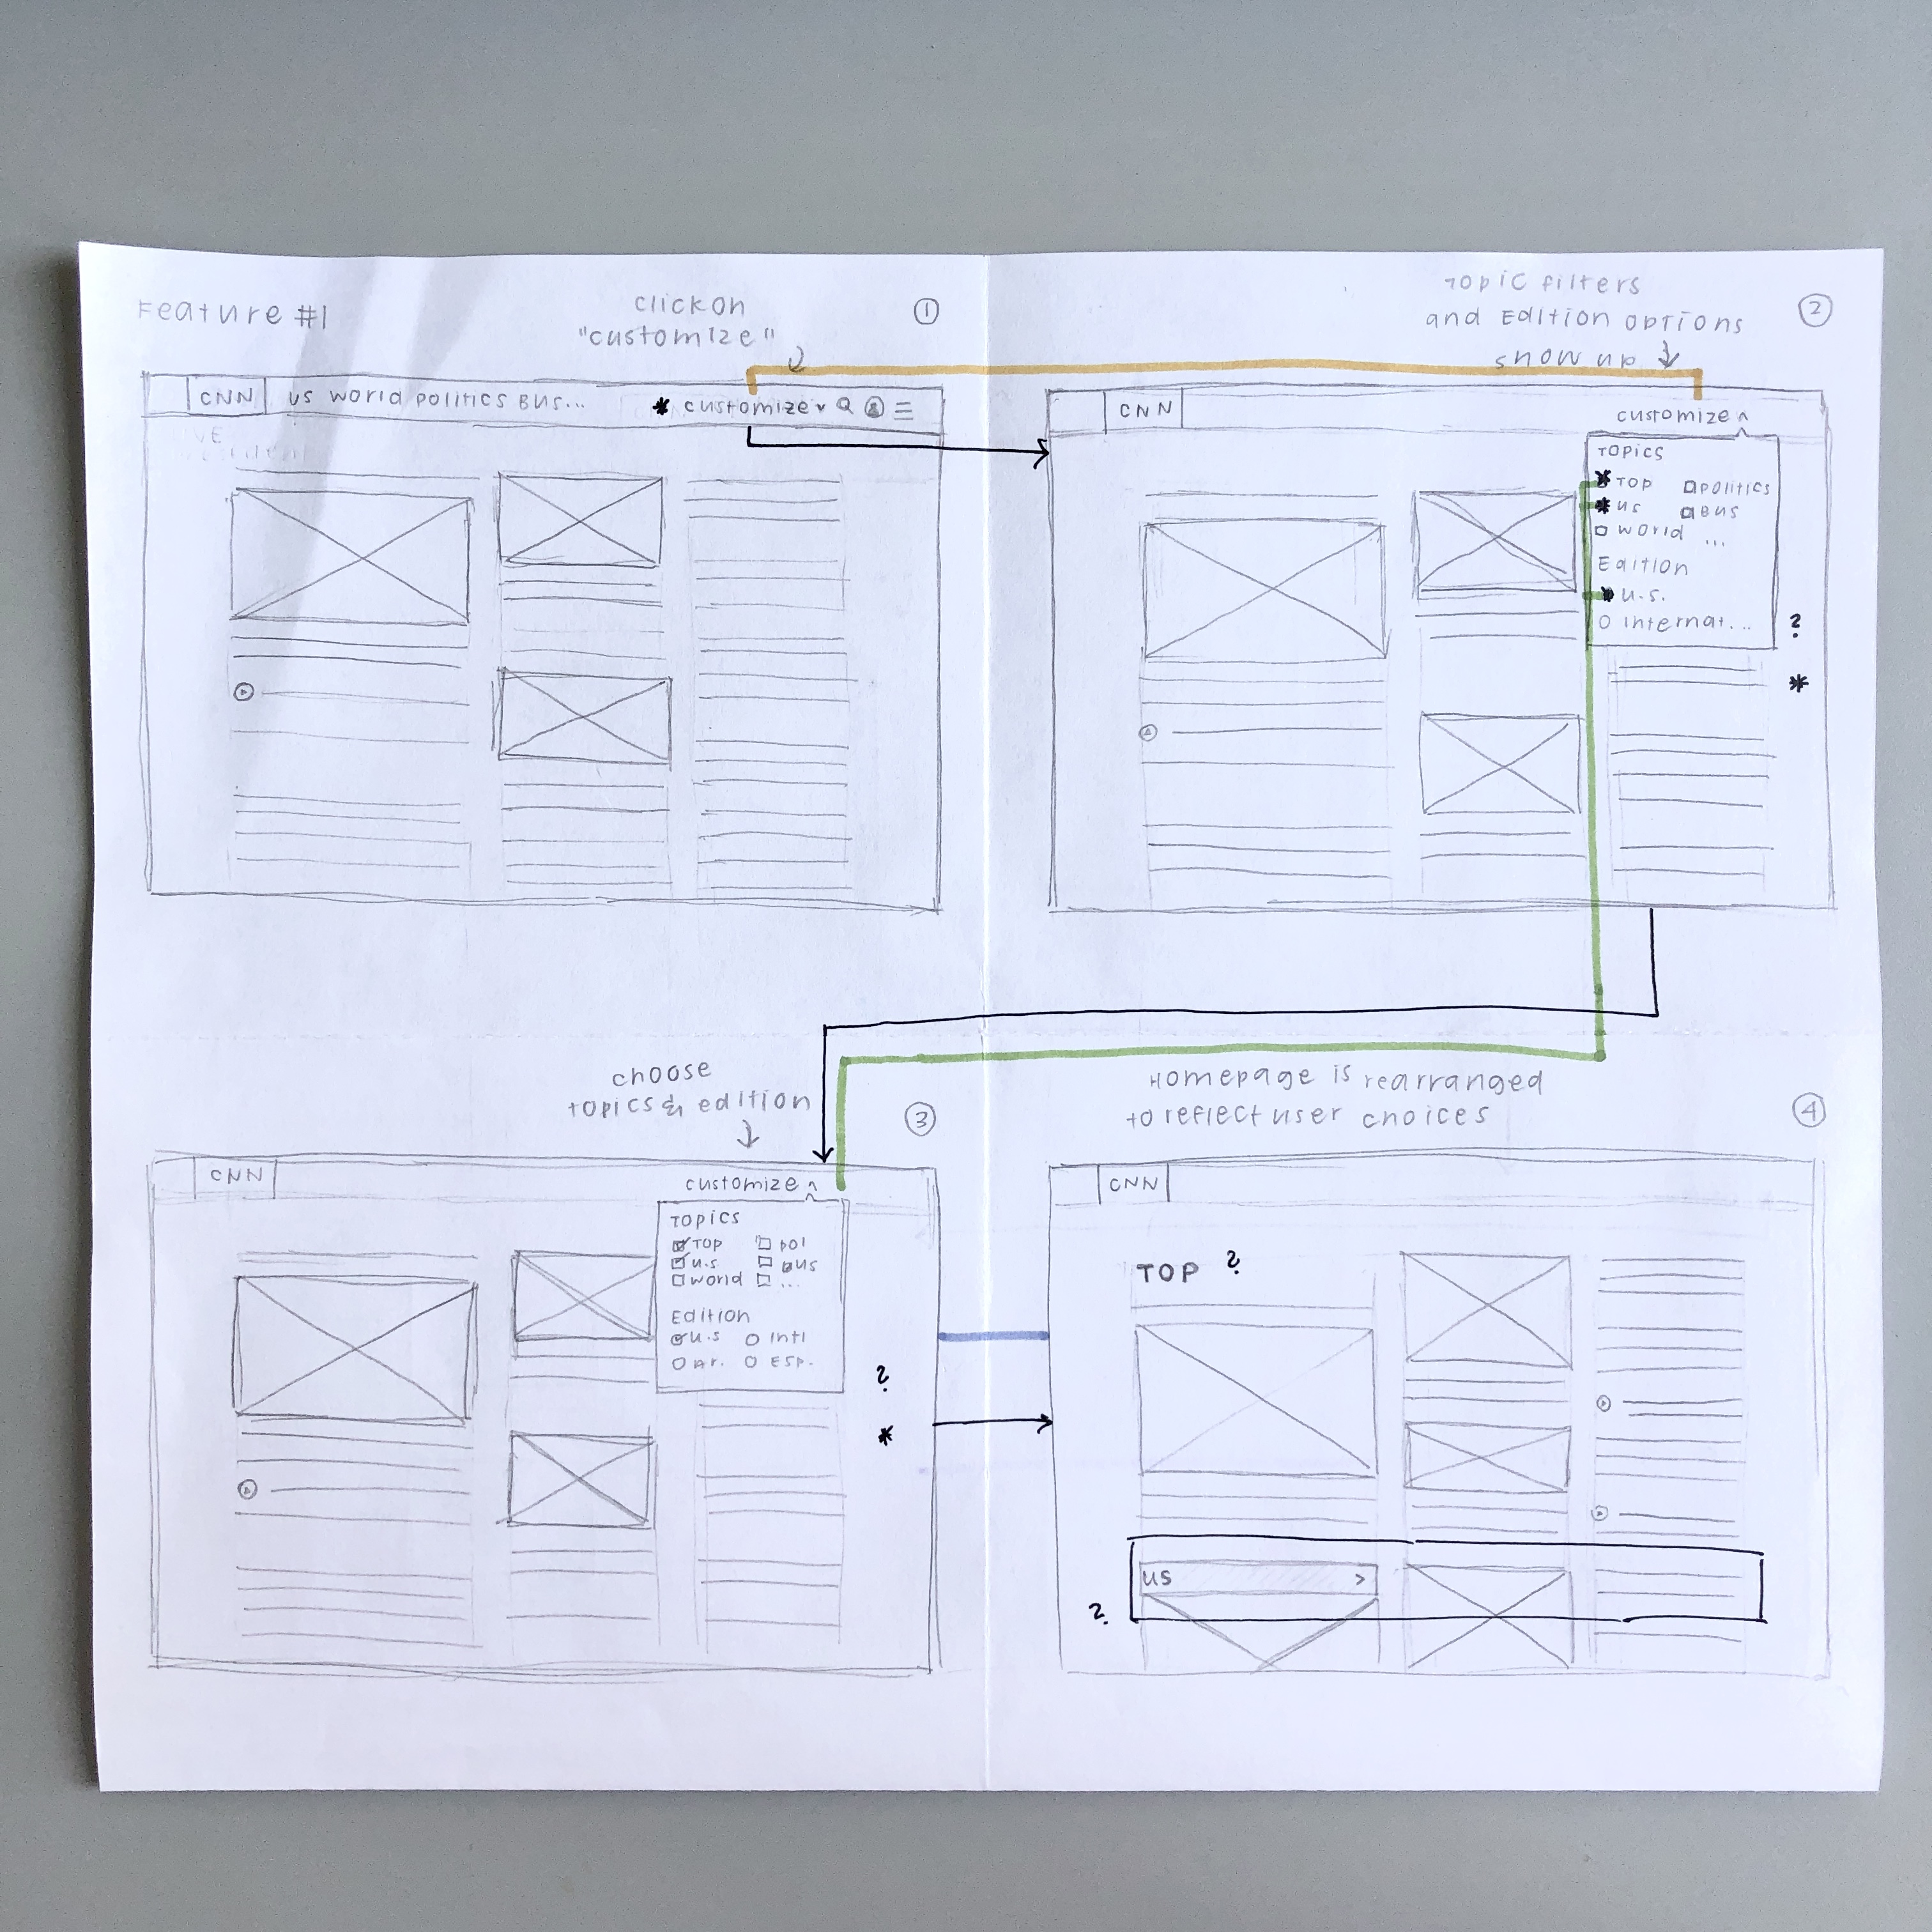 Feature #1
click on
"customize"
1
CNN
us world politics Bus...
* customize
Topic filters
and Edition options
show up
2
CNN
customize ^
Topics
Top
politics
us
Bus
world
...
Edition
u.s.
internat...
?
*
choose
topics & edition
3
CNN
customize ^
Topics
Top
pol
u.s
Bus
world
...
Edition
u.s
Intl
Ar.
Esp.
?
*
Homepage is rearranged
to reflect user choices
4
CNN
TOP ?
us >
?